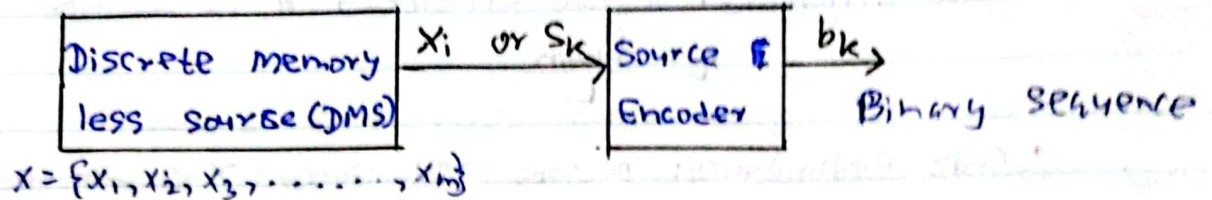 Discrete memory
less sourse (DMS)
Xi or Sk
Source
Encoder
bk
Binary sequence
X = {X1, X2, X3, ......., Xm}